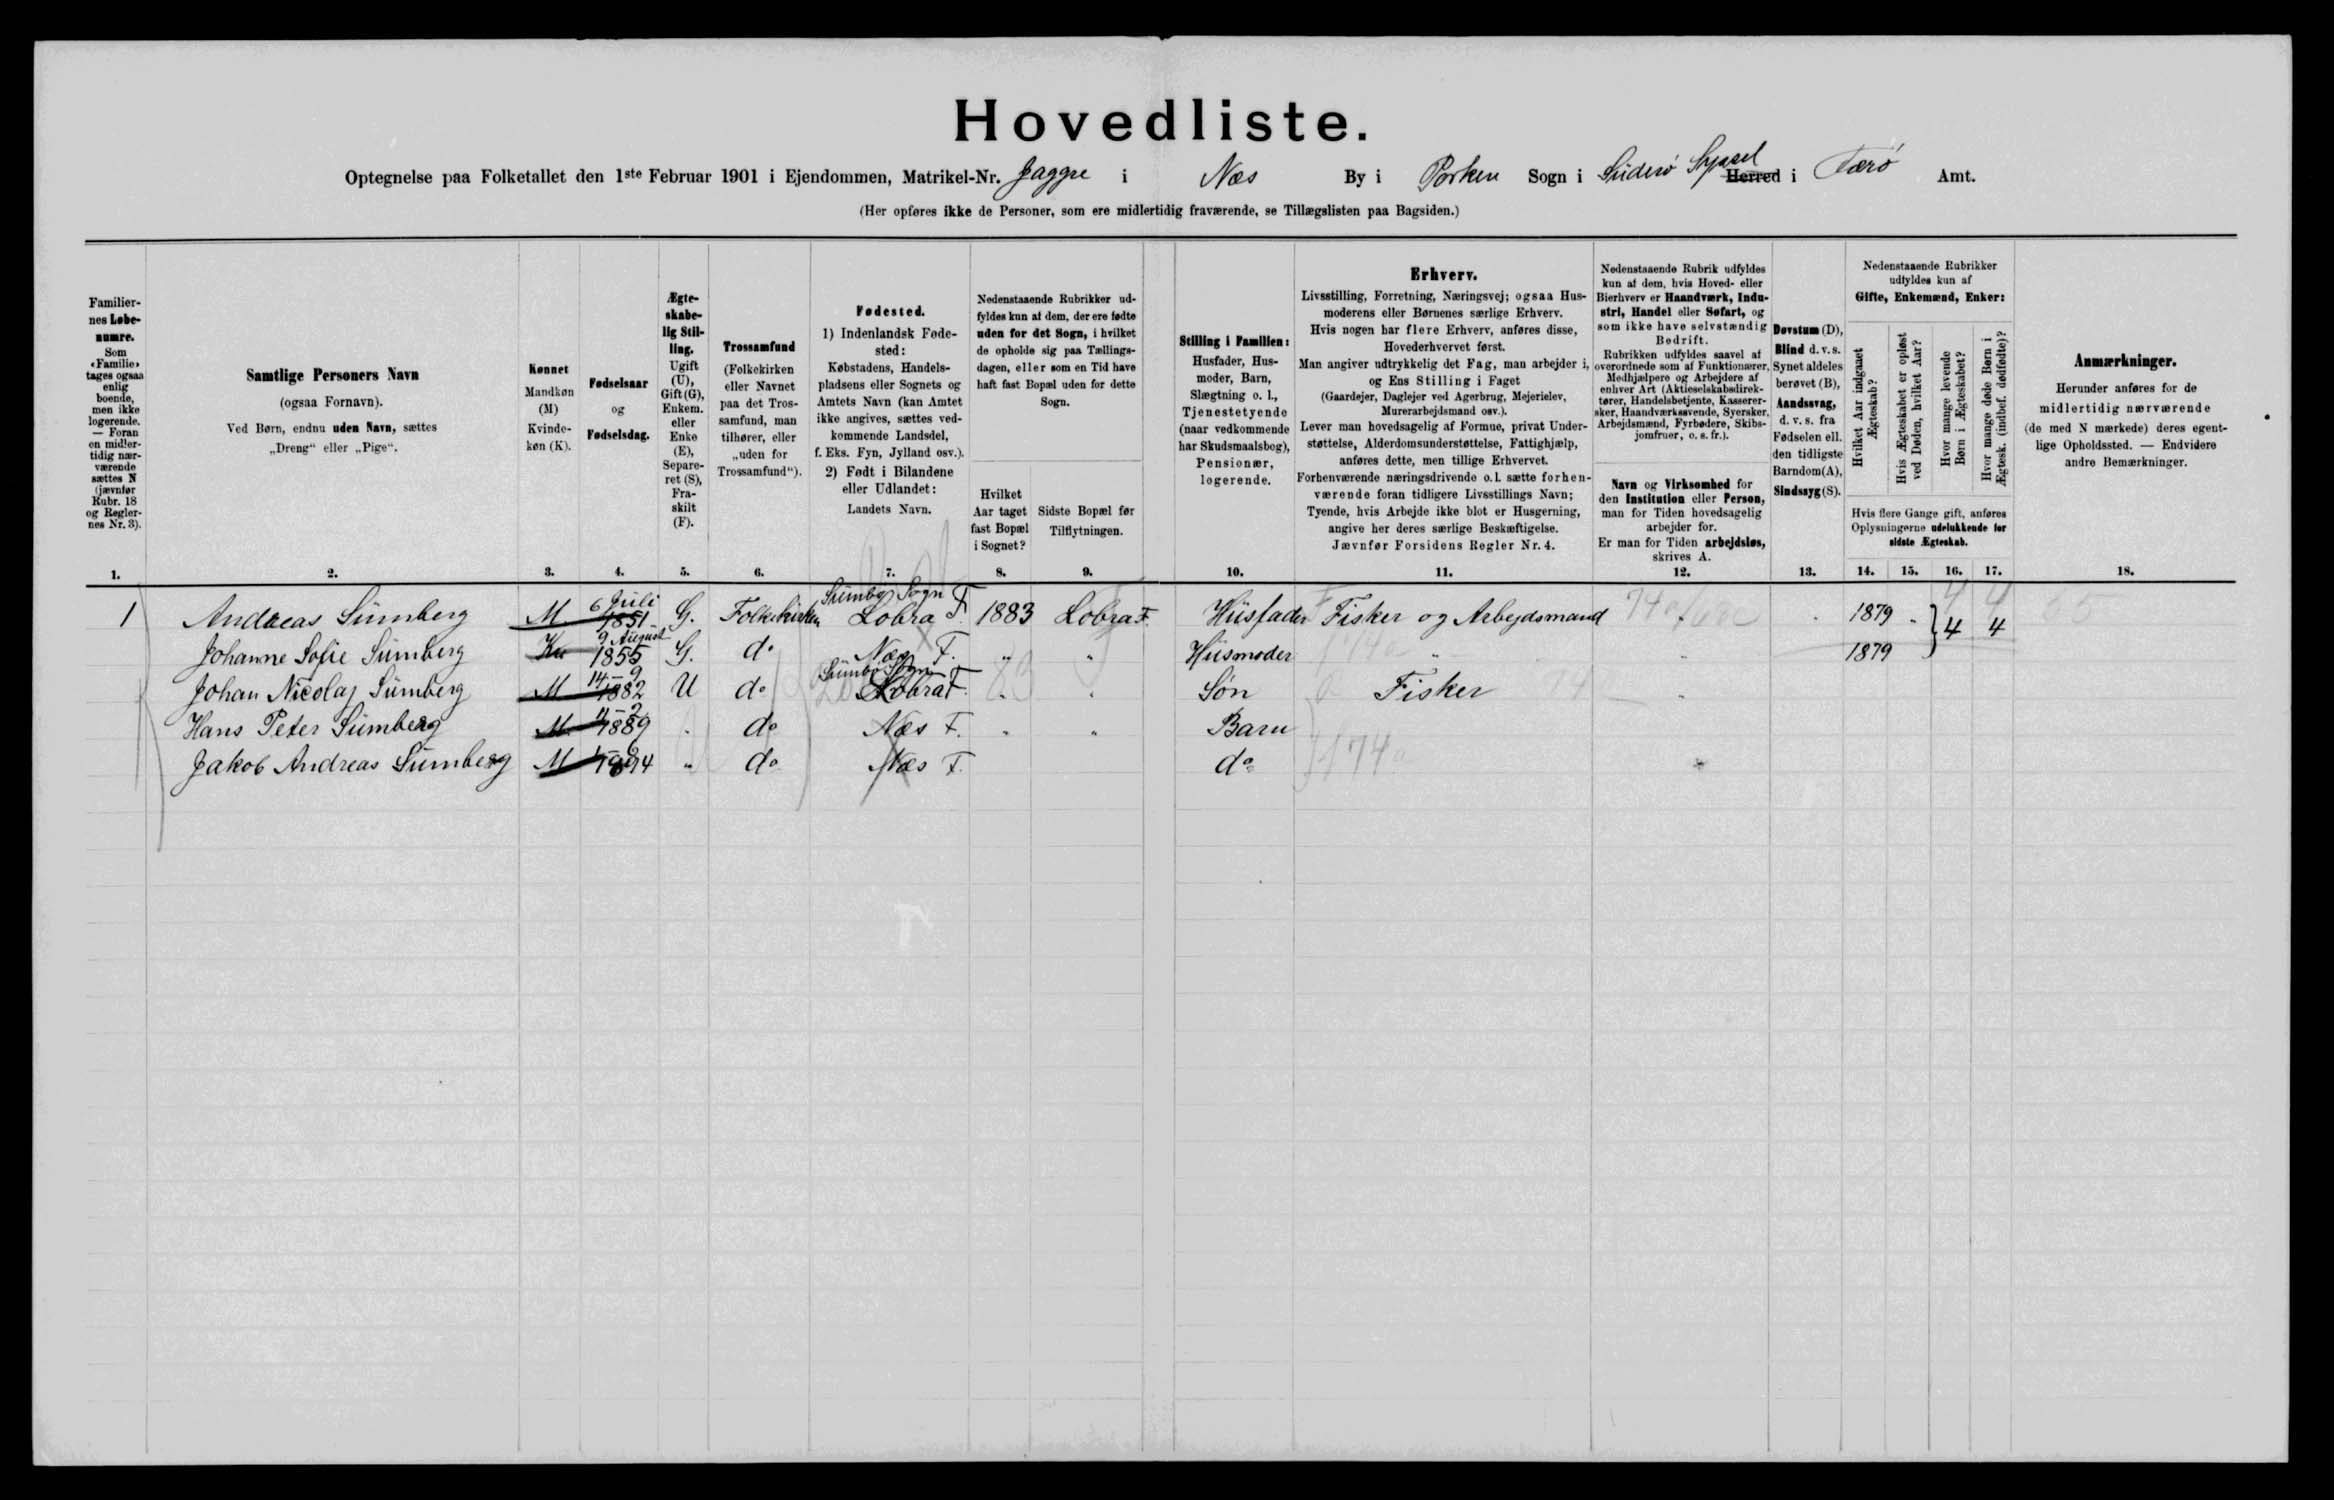 Hovedliste.
Optegnelse paa Folketallet den 1ste Februar 1901 i Ejendommen, Matrikel-Nr. Jaggre i Næs By i Porkere Sogn i Süderø Syssel Herred i Færø Amt.
(Her opføres ikke de Personer, som ere midlertidig fraværende, se Tillægslisten paa Bagsiden.)
Familier-
nes Løbe-
numre.
Som
«Familie»
tages ogsaa
enlig
boende,
men ikke
logerende.
— Foran
en midler-
tidig nær-
værende
sættes N
(jævnfør
Rubr. 18
og Regler-
nes Nr. 3).
Samtlige Personers Navn
(ogsaa Fornavn).
Ved Børn, endnu uden Navn, sættes
„Dreng“ eller „Pige“.
Kønnet
Mandkøn
(M)
Kvinde-
køn (K).
Fødselsaar
og
Fødselsdag.
Ægte-
skabe-
lig Stil-
ling.
Ugift
(U),
Gift (G),
Enkem.
eller
Enke
(E),
Separe-
ret (S),
Fra-
skilt
(F).
Trossamfund
(Folkekirken
eller Navnet
paa det Tros-
samfund, man
tilhører, eller
„uden for
Trossamfund“).
Fødested.
1) Indenlandsk Føde-
sted:
Købstadens, Handels-
pladsens eller Sognets og
Amtets Navn (kan Amtet
ikke angives, sættes ved-
kommende Landsdel,
f. Eks. Fyn, Jylland osv.).
2) Født i Bilandene
eller Udlandet:
Landets Navn.
Nedenstaaende Rubrikker ud-
fyldes kun af dem, der ere fødte
uden for det Sogn, i hvilket
de opholde sig paa Tællings-
dagen, eller som en Tid have
haft fast Bopæl uden for dette
Sogn.
Hvilket
Aar taget
fast Bopæl
i Sognet?
Sidste Bopæl før
Tilflytningen.
Stilling i Familien:
Husfader, Hus-
moder, Barn,
Slægtning o. l.,
Tjenestetyende
(naar vedkommende
har Skudsmaalsbog),
Pensionær,
logerende.
Erhverv.
Livsstilling, Forretning, Næringsvej; ogsaa Hus-
moderens eller Børnenes særlige Erhverv.
Hvis nogen har flere Erhverv, anføres disse,
Hovederhvervet først.
Man angiver udtrykkelig det Fag, man arbejder i,
og Ens Stilling i Faget
(Gaardejer, Daglejer ved Agerbrug, Mejerielev,
Murerarbejdsmand osv.).
Lever man hovedsagelig af Formue, privat Under-
støttelse, Alderdomsunderstøttelse, Fattighjælp,
anføres dette, men tillige Erhvervet.
Forhenværende næringsdrivende o. l. sætte forhen-
værende foran tidligere Livsstillings Navn;
Tyende, hvis Arbejde ikke blot er Husgerning,
angive her deres særlige Beskæftigelse.
Jævnfør Forsidens Regler Nr. 4.
Nedenstaaende Rubrik udfyldes
kun af dem, hvis Hoved- eller
Bierhverv er Haandværk, Indu-
stri, Handel eller Søfart, og
som ikke have selvstændig
Bedrift.
Rubrikken udfyldes saavel af
overordnede som af Funktionærer,
Medhjælpere og Arbejdere af
enhver Art (Aktieselskabsdirek-
tører, Handelsbetjente, Kasserer-
sker, Haandværkssvende, Syersker,
Arbejdsmænd, Fyrbødere, Skibs-
jomfruer, o. s. fr.).
Navn og Virksomhed for
den Institution eller Person,
man for Tiden hovedsagelig
arbejder for.
Er man for Tiden arbejdsløs,
skrives A.
Døvstum (D),
Blind d. v. s.
Synet aldeles
berøvet (B),
Aandssvag,
d. v. s. fra
Fødselen ell.
den tidligste
Barndom (A),
Sindssyg (S).
Nedenstaaende Rubrikker
udfyldes kun af
Gifte, Enkemænd, Enker:
Hvilket Aar indgaaet
Ægteskab?
Hvis Ægteskabet er opløst
ved Døden, hvilket Aar?
Hvor mange levende
Børn i Ægteskabet?
Hvor mange døde Børn i
Ægtesk. (indbef. dødfødte)?
Hvis flere Gange gift, anføres
Oplysningerne udelukkende for
sidste Ægteskab.
Anmærkninger.
Herunder anføres for de
midlertidig nærværende
(de med N mærkede) deres egent-
lige Opholdssted. — Endvidere
andre Bemærkninger.
1. 2. 3. 4. 5. 6. 7. 8. 9. 10. 11. 12. 13. 14. 15. 16. 17. 18.
1 Andreas Sümberg M. 6 Juli 1851 G. Folkekirken Sümbø Sogn Lobra F. 1883 Lobra F. Hüsfader Fisker og Arbejdsmand 1879 4 4
Johanne Sofie Sümberg Kv 9 August 1855 G. do Næs F. " " Hüsmoder " 1879
Johan Nicolaj Sümberg M 14-9 1882 U do Sümbø Sogn Lobra F. " " Søn Fisker "
Hans Peter Sümberg M. 1889 do Næs F. " " Barn
Jakob Andreas Sümberg M 1894 " do Næs F. do